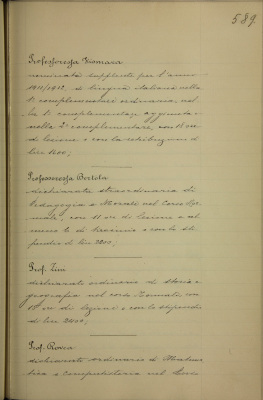 589.
Professoressa Giomara
nominata supplente per l'anno
1911/1912, di lingua italiana nella
1ª complementare ordinaria, nel
la 1ª complementare aggiunta e
nella 2ª complementare, con 15 ore
di lezione e con la retribuzione di
lire 1500;
Professoressa Bertola
dichiarata straordinaria di
Pedagogia e Morale nel Corso Nor
male, con 11 ore di lezione e
di tirocinio e con lo sti
pendio di lire 2200;
Prof. Tini
dichiarato ordinario di storia e
geografia nel corso Normale, con
ore di lezione e con lo stipendio
di lire 2400;
Prof. Rocca
dichiarato ordinario di Matema
tica e Computisteria nel Corso